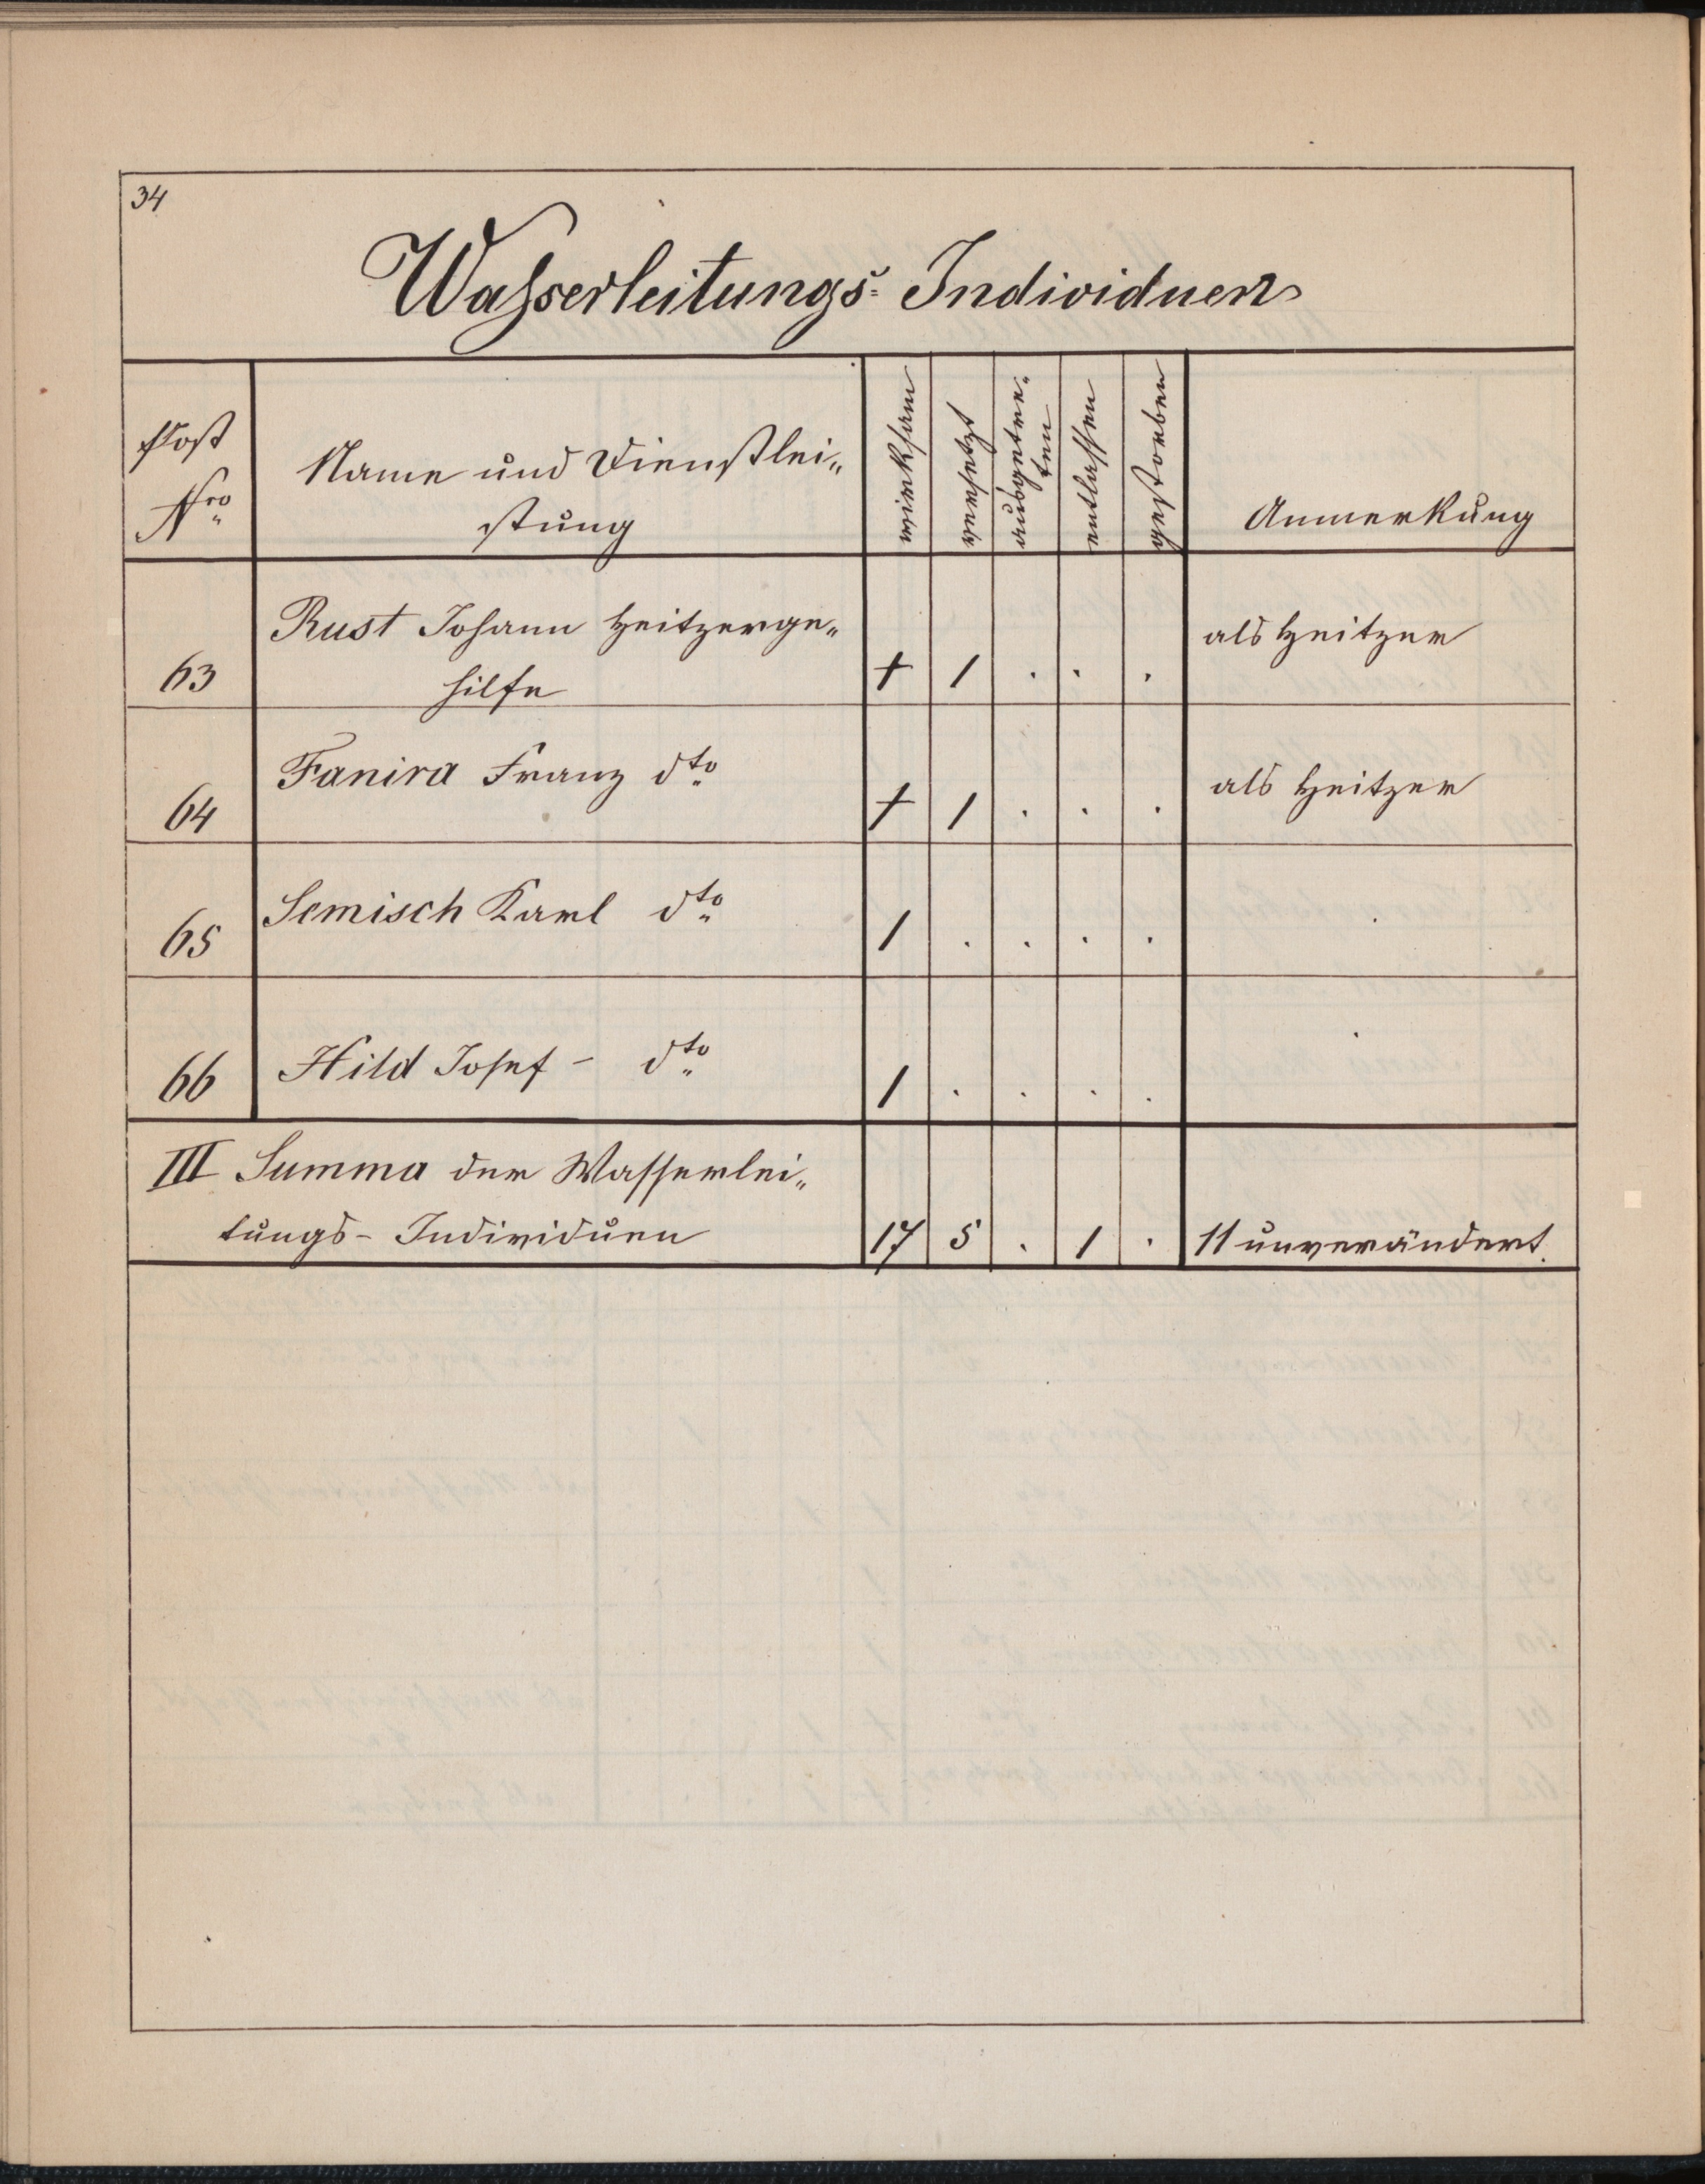 34
Waßserleitungs- Individuen
Post
Nro
Name und Dienstlei„
stung
wirksam
versetzt
ausgetre-
ten
entlassen
gestorben
Anmerkung
Rust Johann Heitzerge„
hilfe
63 + 1 . . . als Heitzer
64 Fanira Franz dto + 1 . . . als Heitzer
65 Semisch Karl dto 1 . . . . .
66 Hild Josef - dto 1 . . . . .
III Summa der Wasserlei„
tungs- Individuen 17 5 . 1 . 11 unverändert.